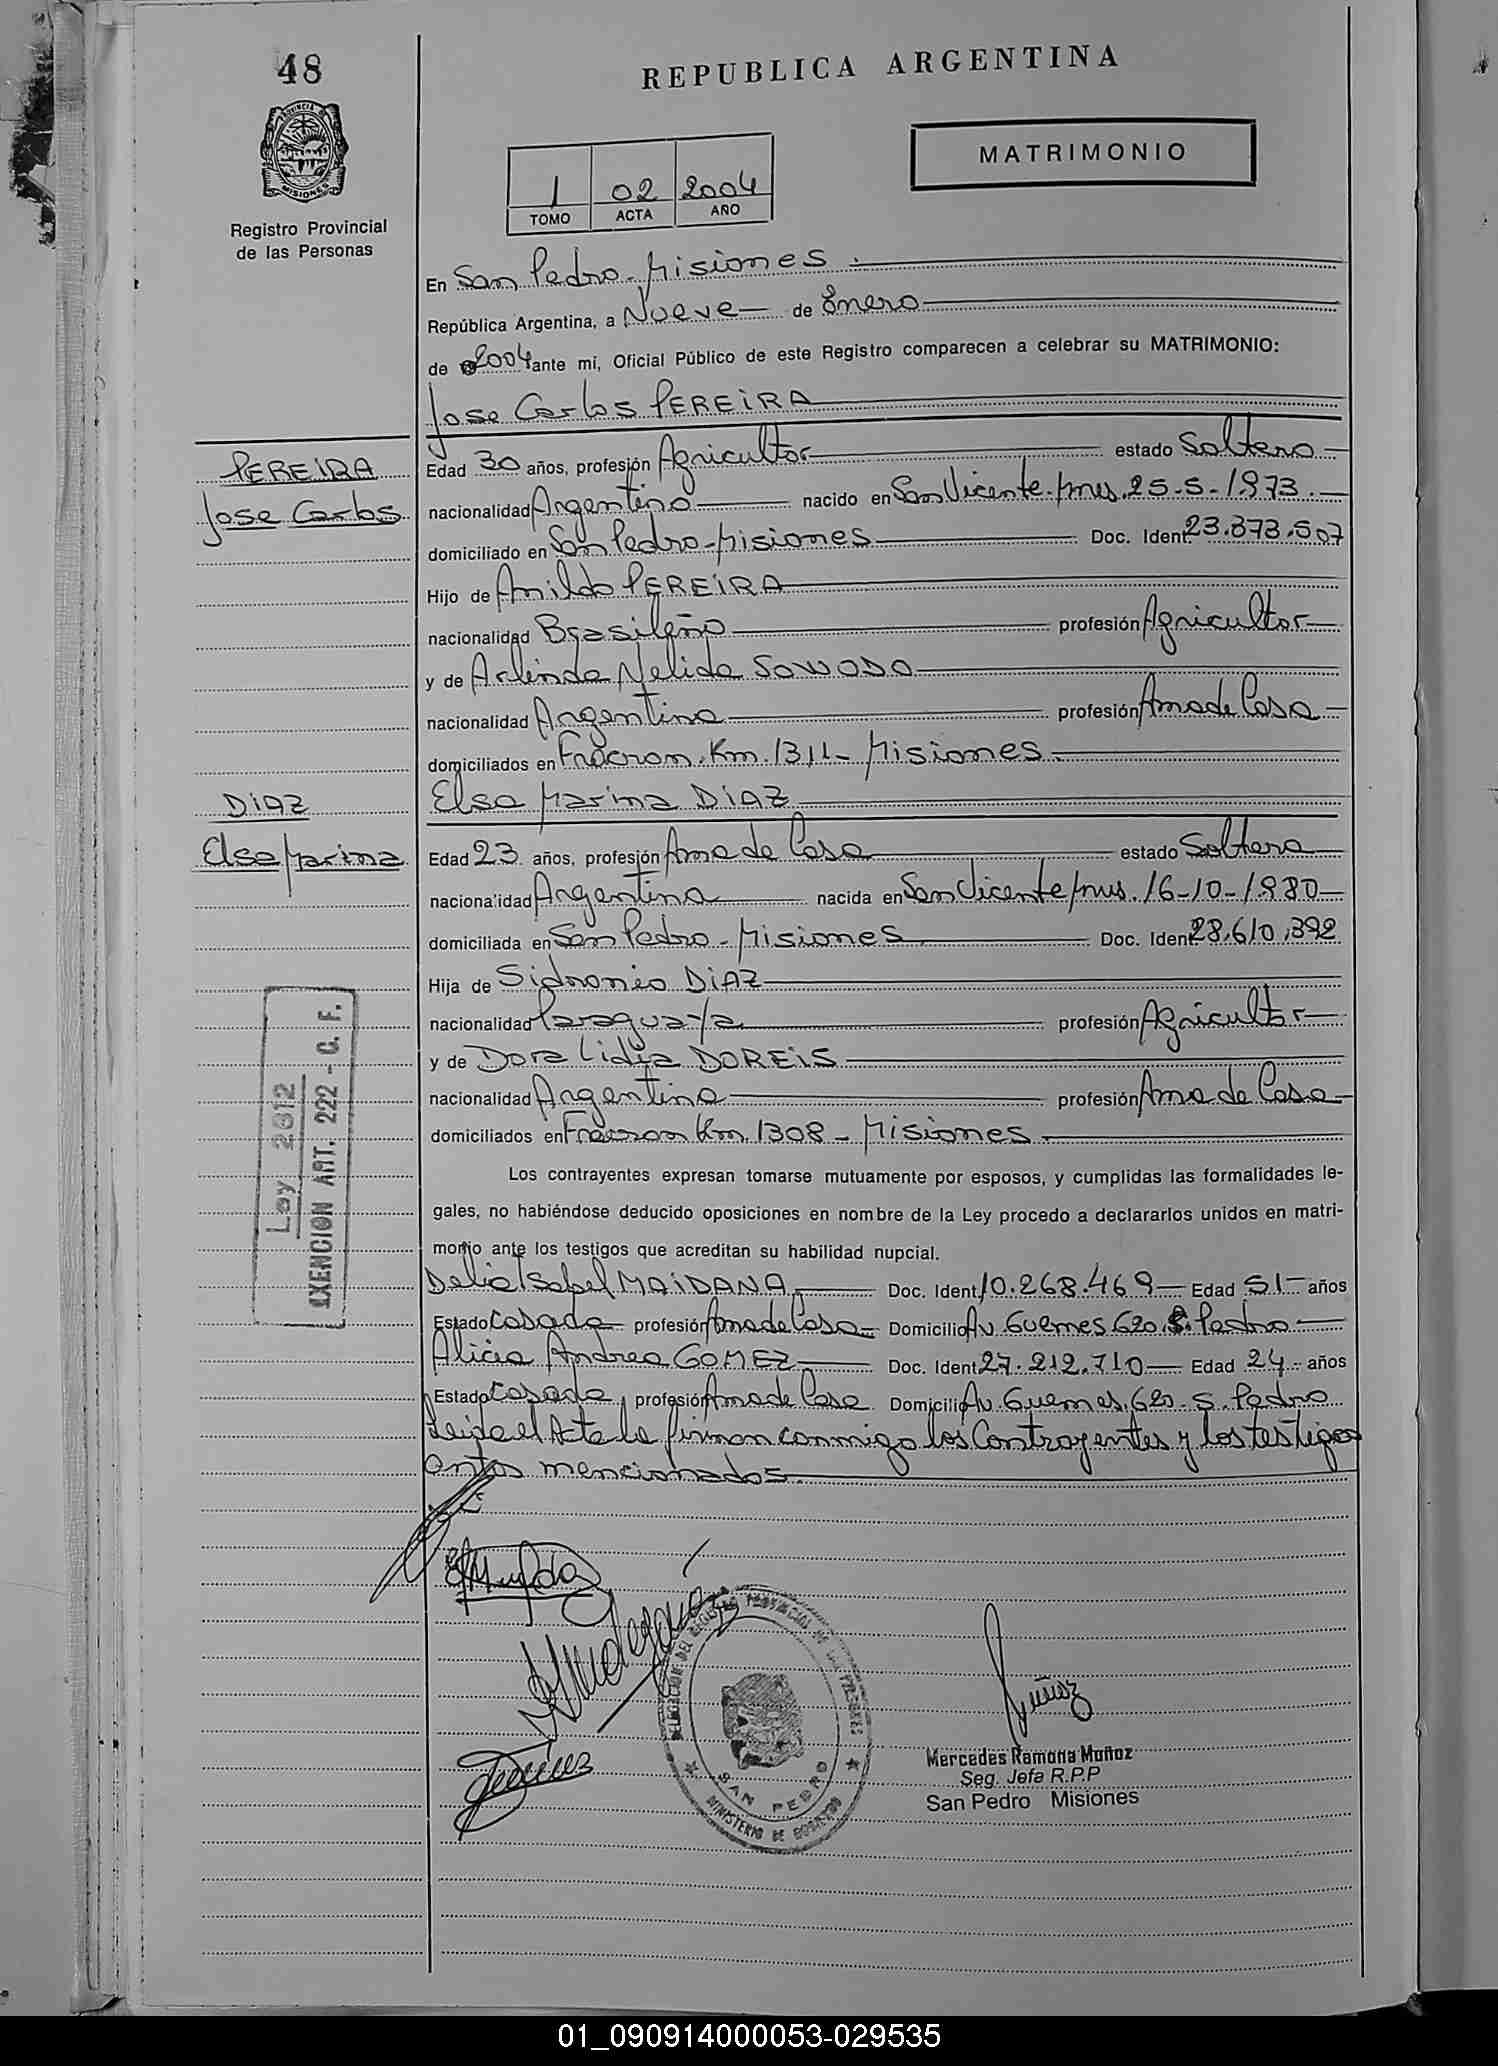 48
REPUBLICA ARGENTINA
PROVINCIA DE
MISIONES
Registro Provincial
de las Personas
MATRIMONIO
1 02 2004
TOMO ACTA AÑO
En San Pedro - Misiones
República Argentina, a Nueve de Enero
de 2004 ante mí, Oficial Público de este Registro comparecen a celebrar su MATRIMONIO:
Jose Carlos PEREIRA
PEREIRA
Jose Carlos
Edad 30 años, profesión Agricultor estado Soltero
nacionalidad Argentino nacido en San Vicente. Mnes. 25-5-1973.
domiciliado en San Pedro - Misiones Doc. Ident. 23.373.507
Hijo de Anildo PEREIRA
nacionalidad Brasileño profesión Agricultor
y de Arlinda Nelida
nacionalidad Argentina profesión Ama de Casa
domiciliados en Fracran. Km. 1311 - Misiones
Elsa Marina DIAZ
DIAZ
Elsa Marina
Edad 23 años, profesión Ama de Casa estado Soltera
nacionalidad Argentina nacida en San Vicente Mnes. 16-10-1980
domiciliada en San Pedro - Misiones Doc. Ident. 28.610.392
Hija de Sidronio DIAZ
nacionalidad Paraguaya profesión Agricultor
y de Dora Lidia DOREIS
nacionalidad Argentina profesión Ama de Casa
domiciliados en Fracran Km. 1308 - Misiones
Ley 2812
EXENCION ART. 222 - C. F.
Los contrayentes expresan tomarse mutuamente por esposos, y cumplidas las formalidades le-
gales, no habiéndose deducido oposiciones en nombre de la Ley procedo a declararlos unidos en matri-
monio ante los testigos que acreditan su habilidad nupcial.
Delia Isabel MAIDANA Doc. Ident. 10.268.469 Edad 51 años
Estado Casada profesión Ama de Casa Domicilio Av. Guemes 620. S. Pedro
Alicia Andrea GOMEZ Doc. Ident. 27.212.710 Edad 24 años
Estado Casada profesión Ama de Casa Domicilio Av. Guemes. 620 - S. Pedro
Leida el Acta la firman conmigo los Contrayentes y los testigos
antes mencionados.
DELEGACION DEL REGISTRO PROVINCIAL DE LAS PERSONAS
SAN PEDRO
MINISTERIO DE GOBIERNO
Mercedes Ramona Muñoz
Seg. Jefa R.P.P
San Pedro Misiones
01_090914000053-029535